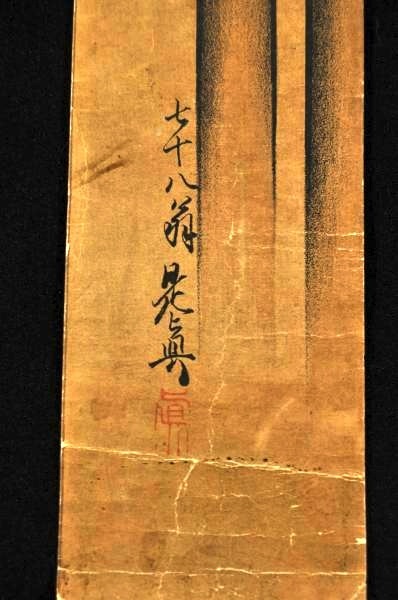 七十八翁 是真
眞